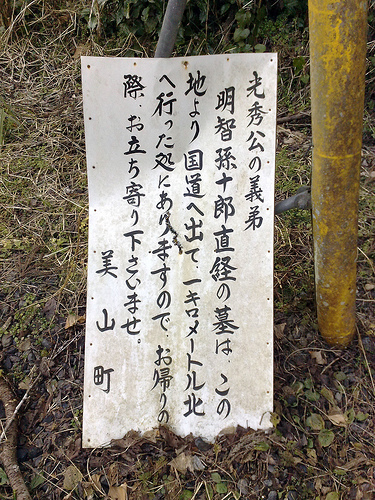 光秀公の義弟
明智孫十郎直経の墓は、この
地より国道へ出て、一キロメートル北
へ行った処にありますので、お帰りの
際、お立ち寄り下さいませ。
美山町